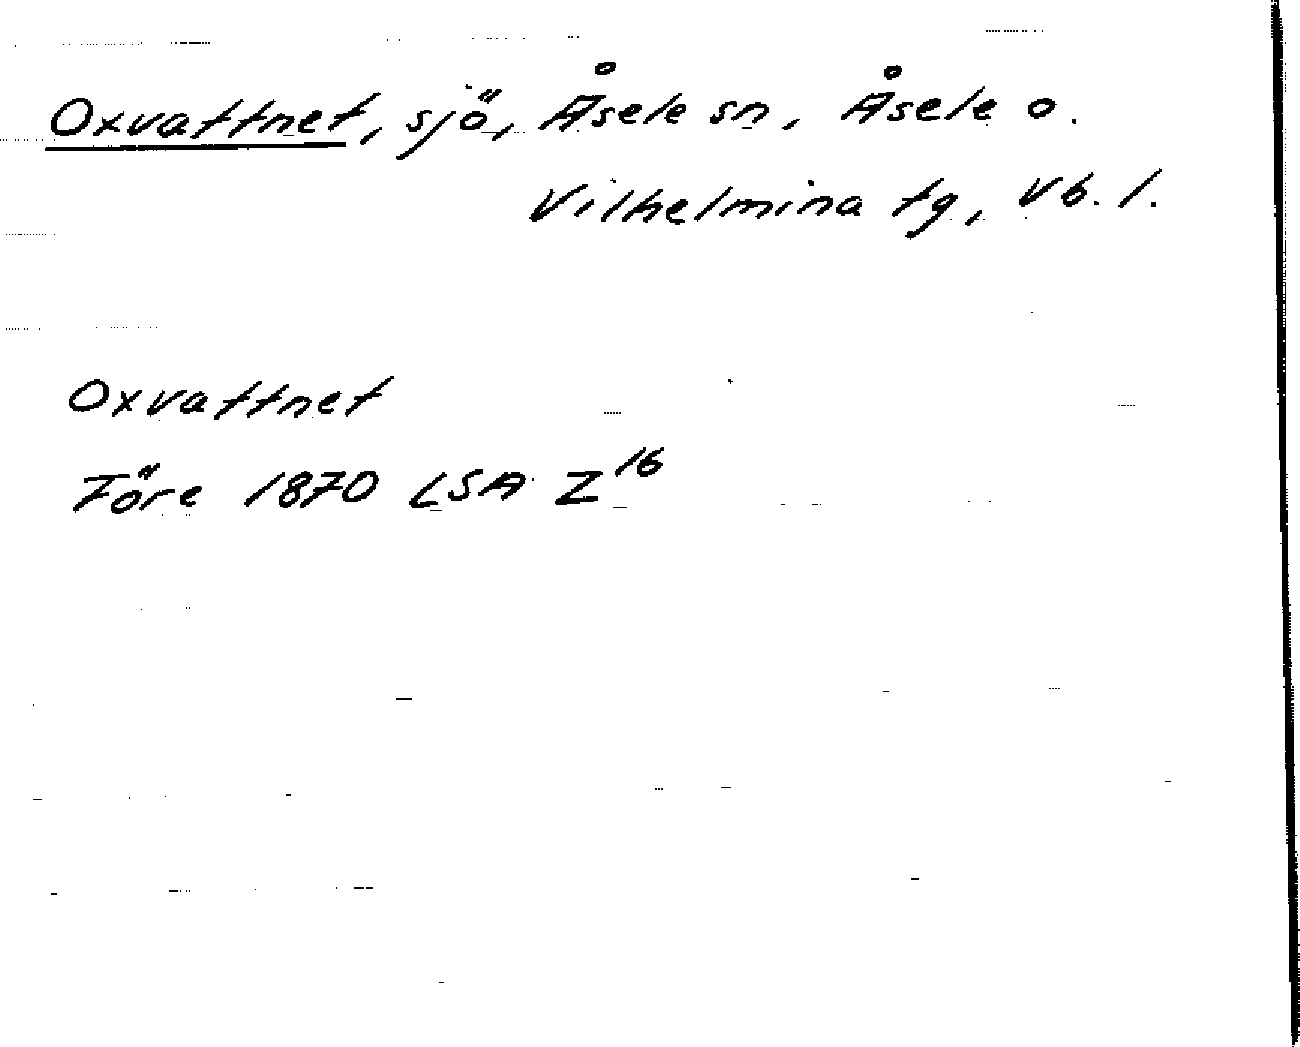 Oxvattnet, sjö, Åsele sn, Åsele o.
Vilhelmina tg, Vb. l.
Oxvattnet
Före 1870 LSA Z16